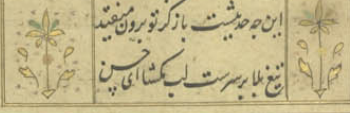 این چه حدیثیست باز کز تو برون میفتد
تیغ بلا بر سرست لب بگشا ای حسن